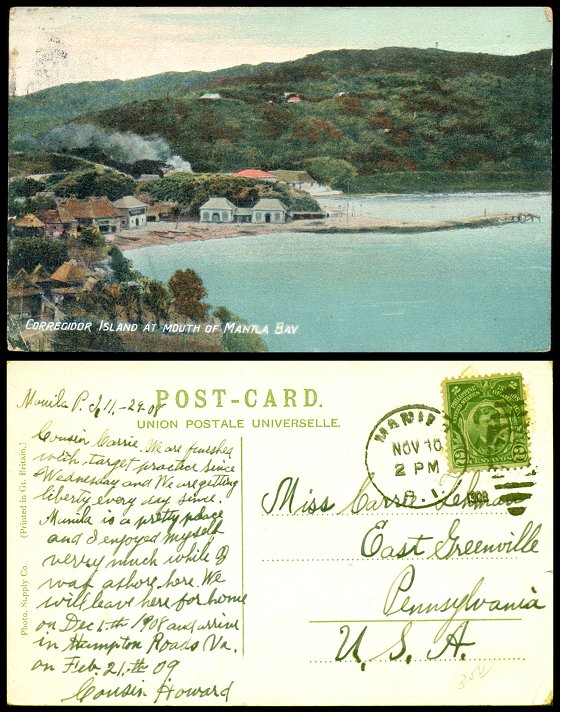 CORREGIDOR ISLAND AT MOUTH OF MANILA BAY
Manila P.I. 11-29-08
POST-CARD.
UNION POSTALE UNIVERSELLE.
Cousin Carrie. We are finished
with target practice since
Wednesday and We are getting
liberty every day since.
Manila is a pretty place
and I enjoyed myself
verry much while I
was ashore here. We
will leave here for home
on Dec 1th 1908 and arrive
in Hampton Roads Va.
on Feb 21th 09
Cousin Howard
MANILA
NOV 10
2 PM
P. I.
1908
2 2
Miss Carrie Lehman
East Greenville
Pennsylvania
U. S. A.
Photo. Supply Co. (Printed in Gt. Britain.)